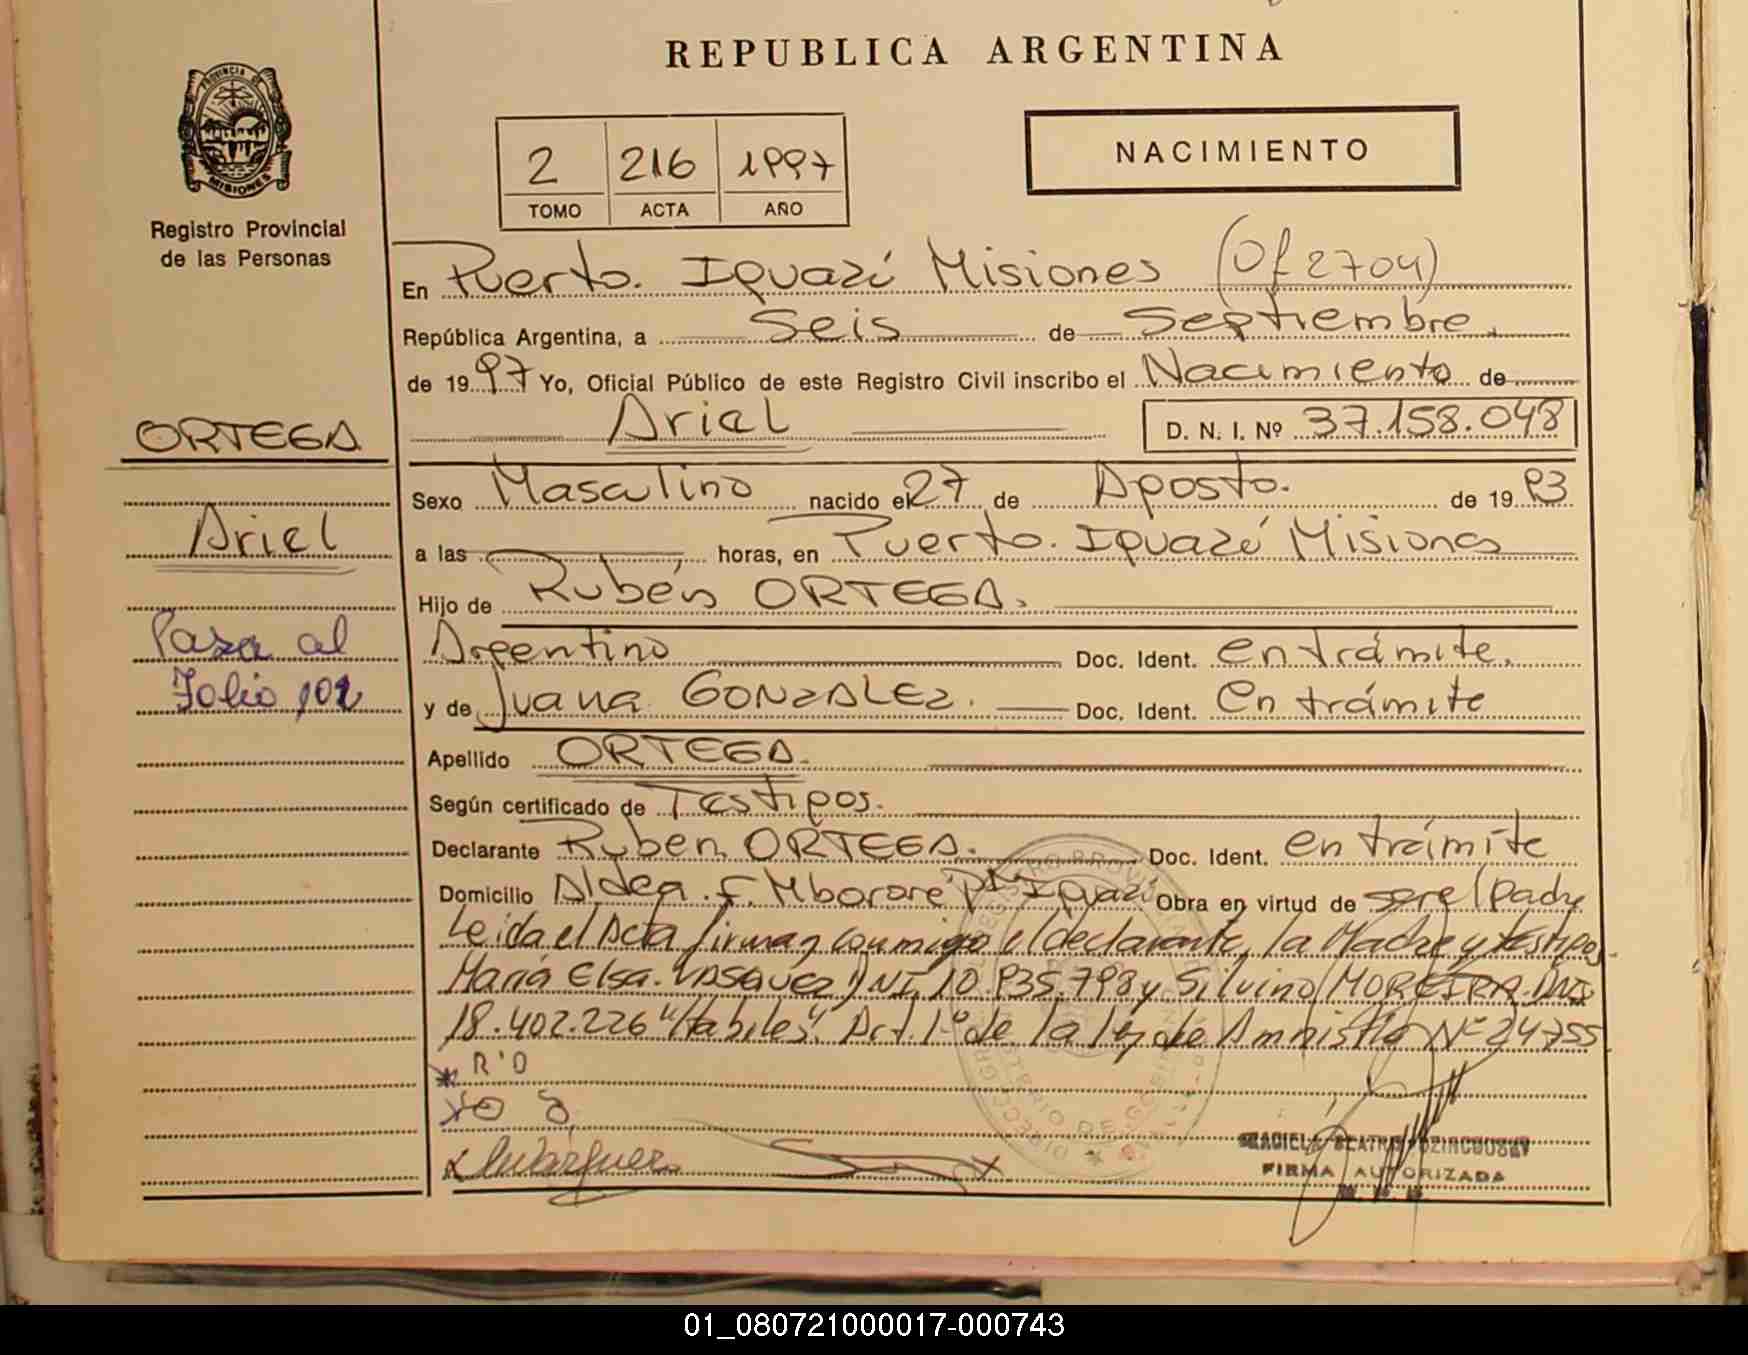 REPUBLICA ARGENTINA
PROVINCIA DE
MISIONES
Registro Provincial
de las Personas
2 216 1997
TOMO ACTA AÑO
NACIMIENTO
En Puerto. Iguazú Misiones (Of 2704)
República Argentina, a Seis de Septiembre.
de 1997 Yo, Oficial Público de este Registro Civil inscribo el Nacimiento de
Ariel D. N. I. Nº 37.158.048
ORTEGA
Sexo Masculino nacido el 27 de Agosto. de 1993
Ariel
a las horas, en Puerto. Iguazú Misiones
Hijo de Rubén ORTEGA.
Pasa al
Folio 102
Argentino Doc. Ident. en trámite.
y de Juana GONZALEZ. Doc. Ident. en trámite
Apellido ORTEGA.
Según certificado de Testigos.
Declarante Ruben ORTEGA. Doc. Ident. en trámite
Domicilio Aldea. F. Mbororé Pto Iguazú Obra en virtud de ser el padre
Leida el Acta firman conmigo el declarante, la Madre y testigos
María Elsa. VASQUEZ DNI 10.935.798 y Silvino MOREIRA. DNI
18.402.226 "Habiles". Art. 1º de la ley de Amnistía Nº 24755
R'O
FIRMA AUTORIZADA
01_080721000017-000743